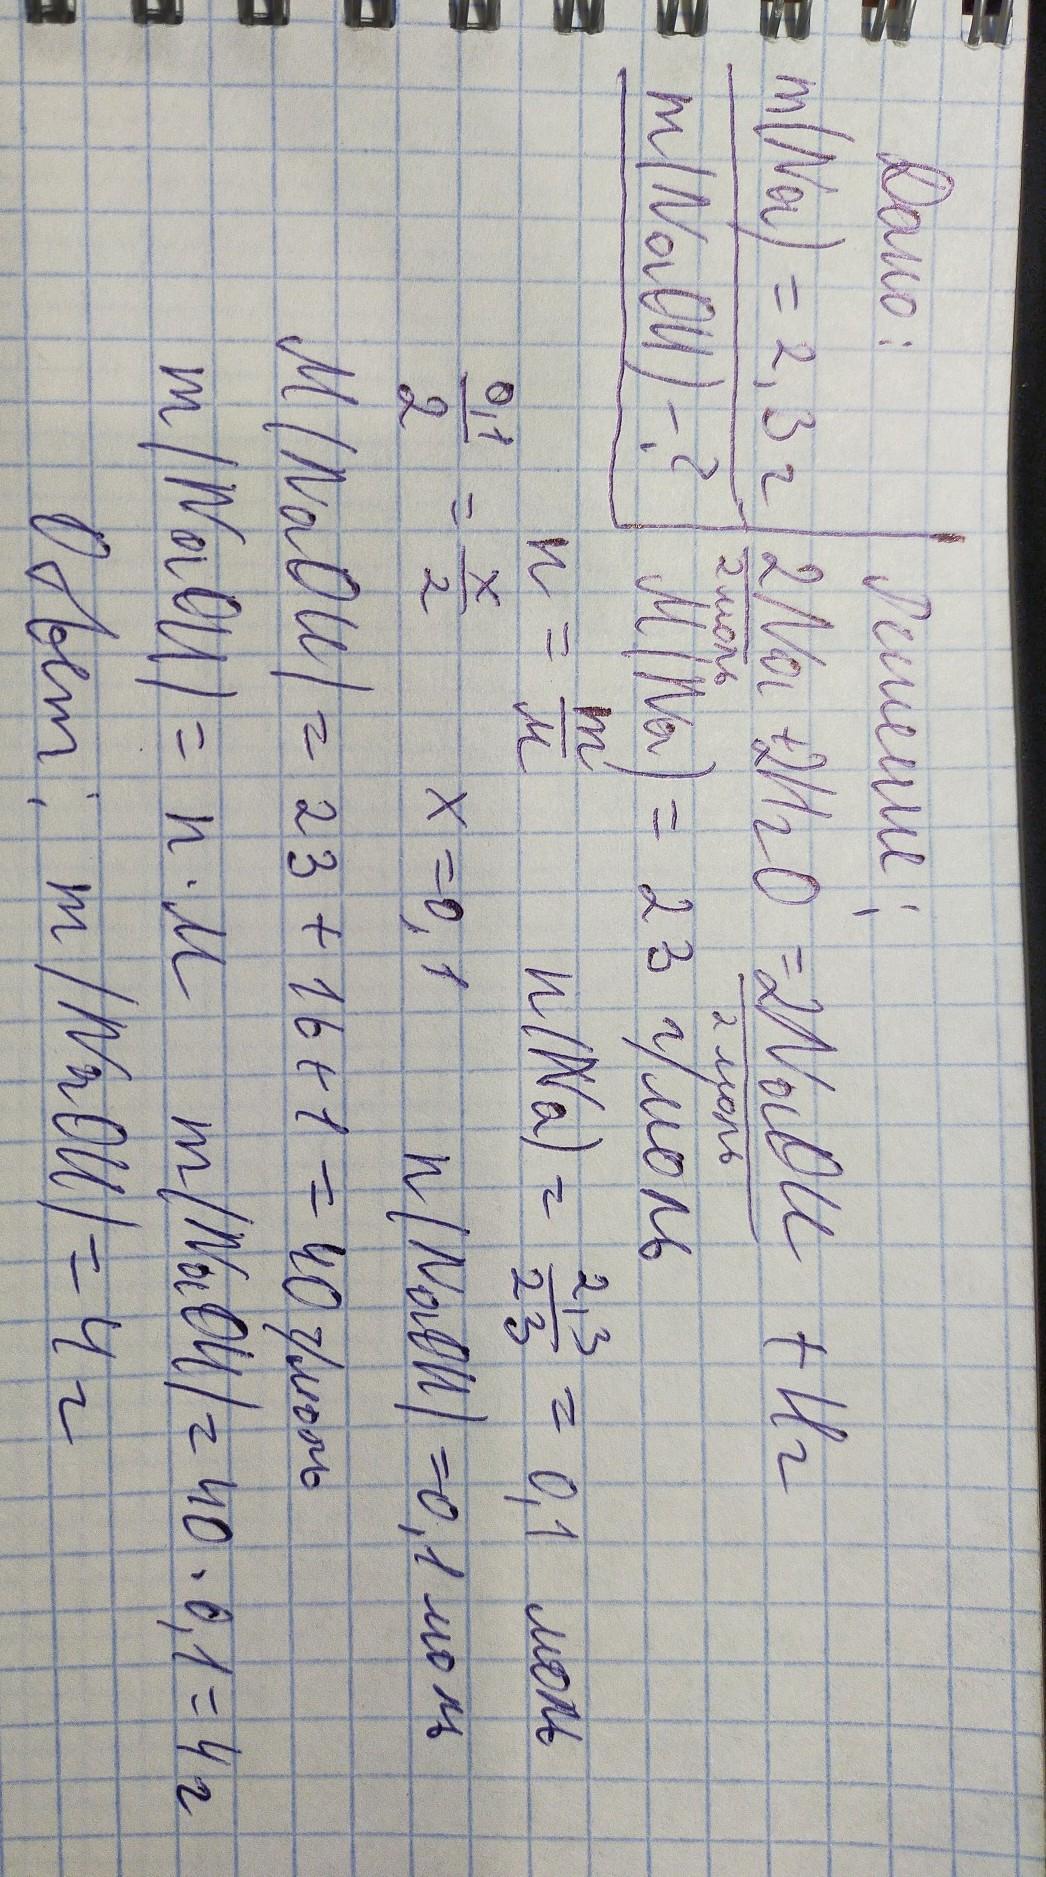 Дано:
m(Na) = 2,3 г
m(NaOH) - ?
Решение:
2Na + 2H2O = 2NaOH + H2
2 моль 2 моль
M(Na) = 23 г/моль
n = m/M n(Na) = 2,3/23 = 0,1 моль
0,1/2 = x/2 x = 0,1 n(NaOH) = 0,1 моль
M(NaOH) = 23 + 16 + 1 = 40 г/моль
m(NaOH) = n · M m(NaOH) = 40 · 0,1 = 4 г
Ответ: m(NaOH) = 4 г